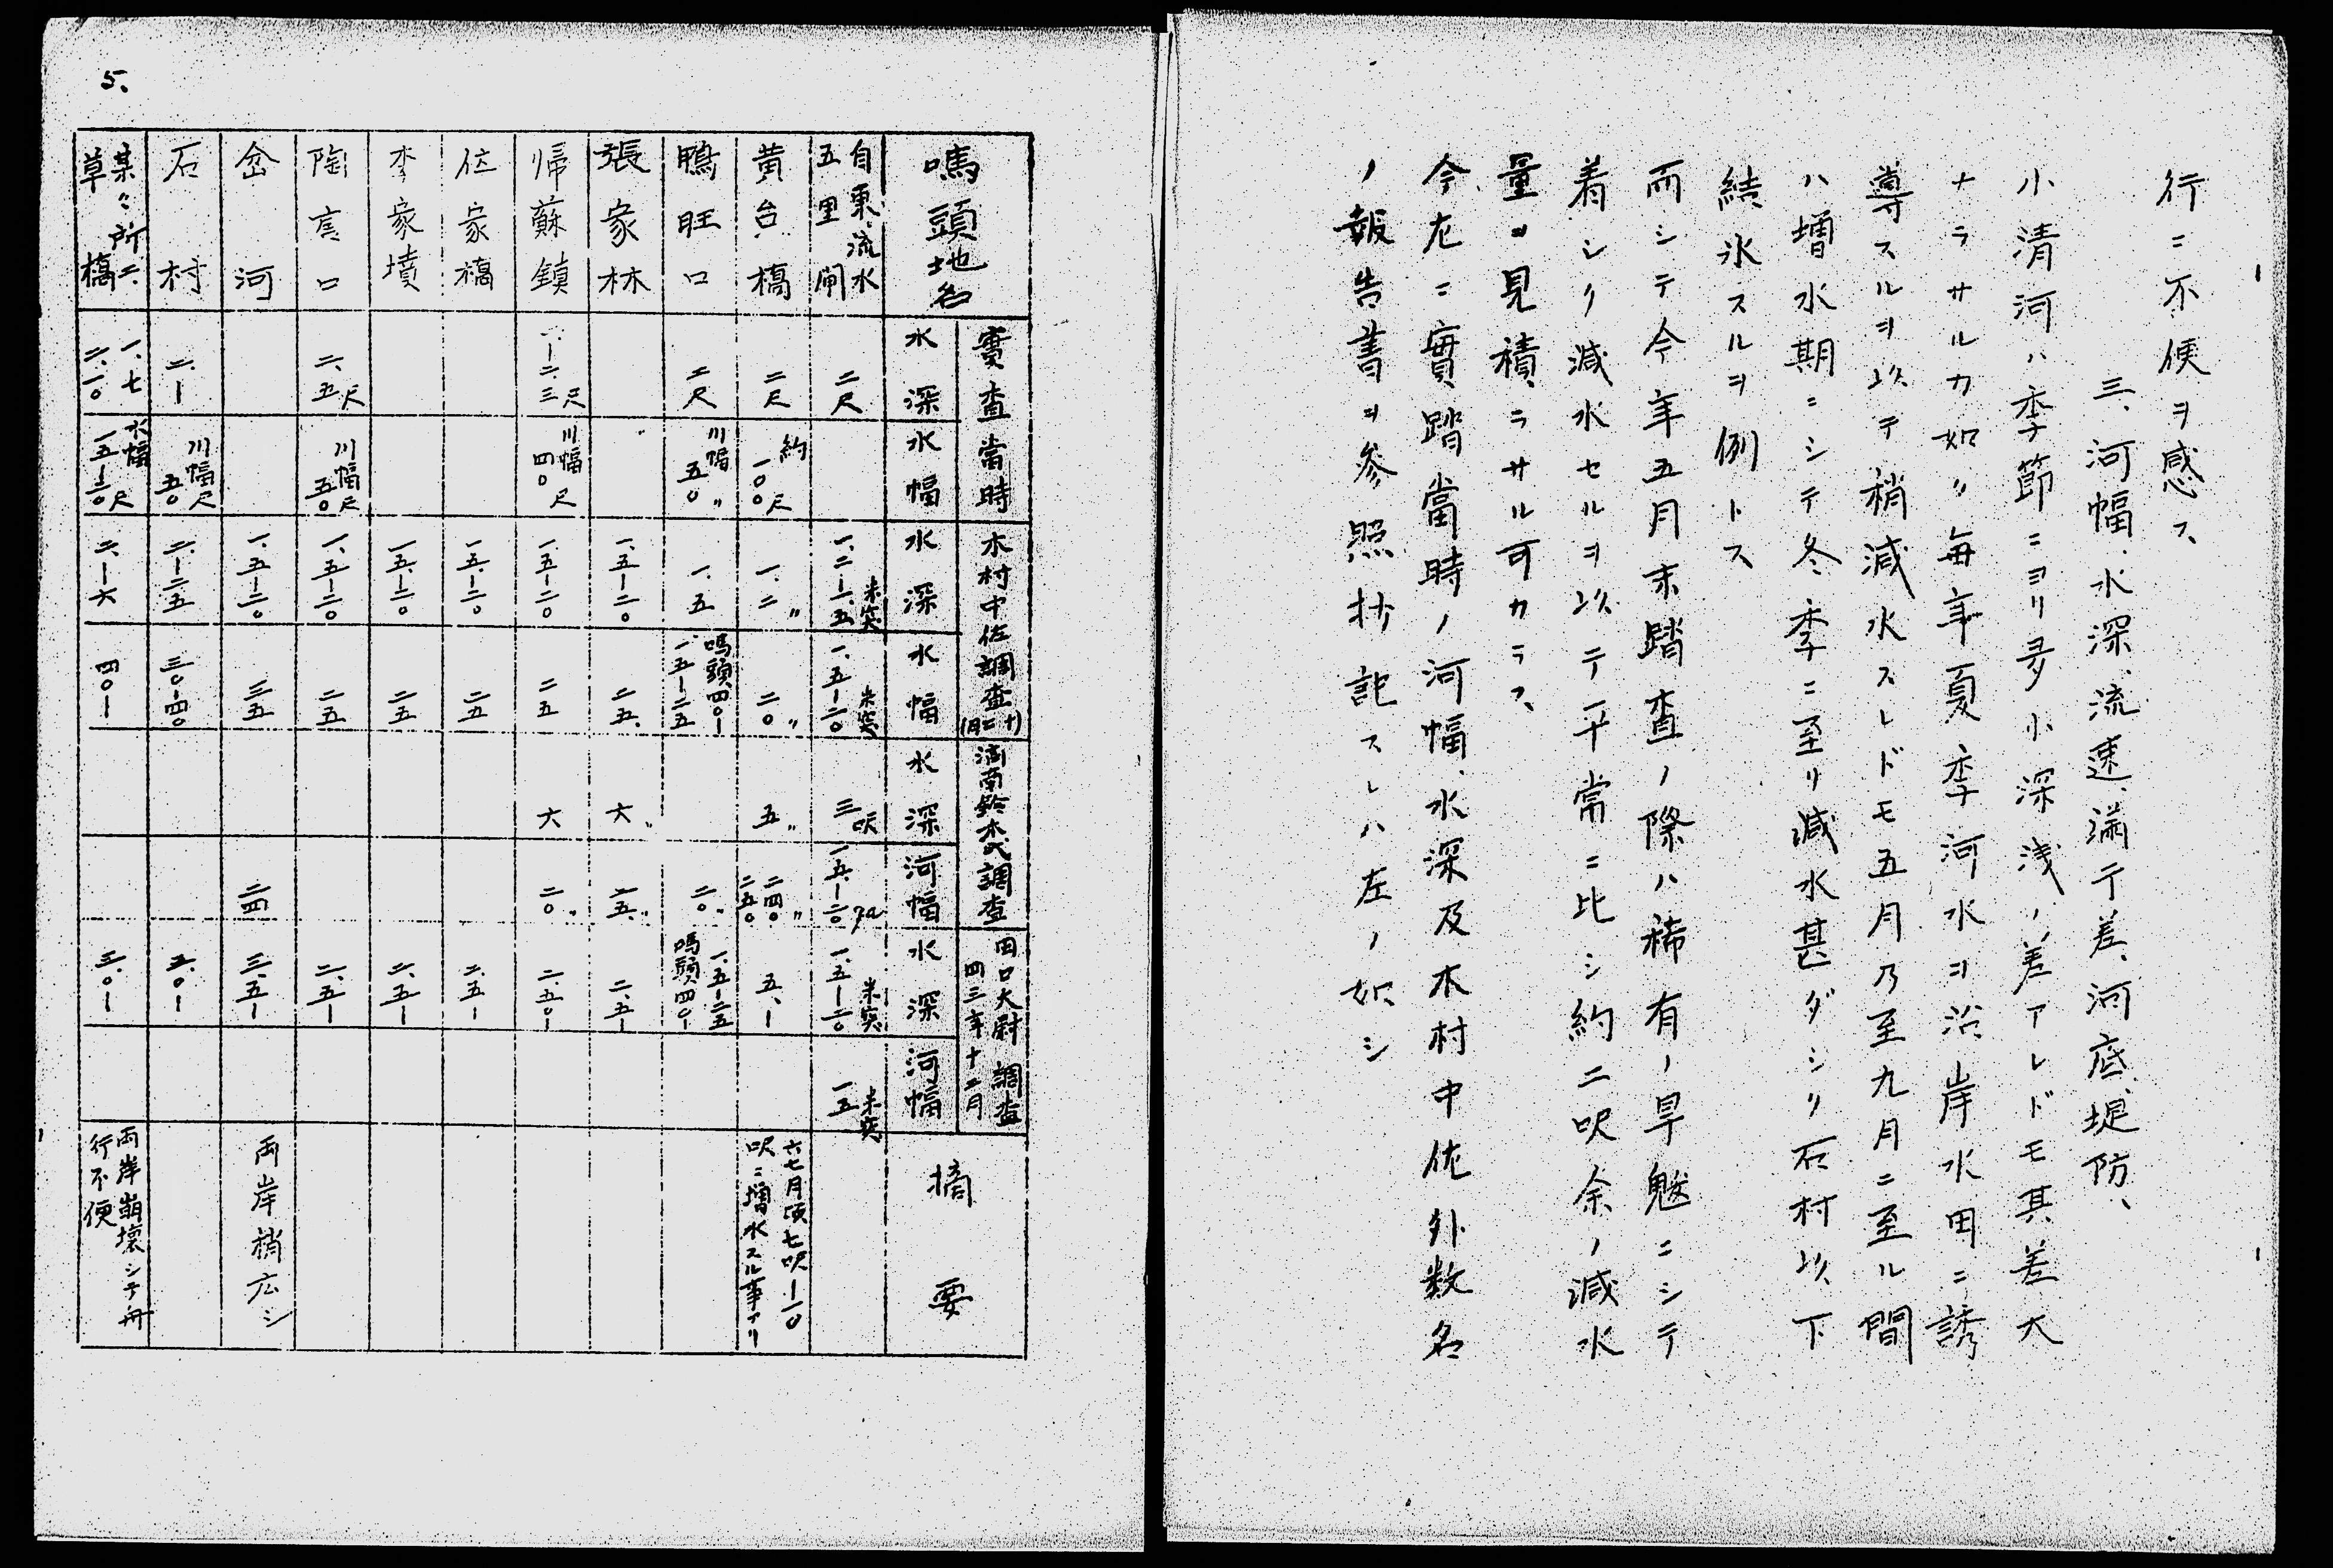 行ニ不便ヲ感ス、
三、河幅、水深、流速、満干差、河底、堤防、
小清河ハ季節ニヨリ多少深浅ノ差アレドモ其差大
ナラサルカ如シ毎年夏季河水ヲ沿岸水田ニ誘
導スルヲ以テ稍減水スレドモ五月乃至九月ニ至ル間
ハ増水期ニシテ冬季ニ至リ減水甚ダシク石村以下
結氷スルヲ例トス
而シテ今年五月末踏査ノ際ハ稀有ノ旱魃ニシテ
着シク減水セルヲ以テ平常ニ比シ約二呎余ノ減水
量ヲ見積ラサル可カラス、
今左ニ實踏當時ノ河幅、水深及木村中佐外数名
ノ報告書ヲ参照抄記スレハ左ノ如シ
5.
嗎頭地名
實査當時
水深
水幅
木村中佐調査(十二月)
水深
水幅
済南鈴木氏調査
水深
河幅
田口大尉調査
四三年十二月
水深
河幅
摘要
五里閘
二尺
一.二―一.五 米突
一.五―二〇 米突
三呎
一五.―二〇
一.五―二〇 米突
一五 米突
黄台橋
二尺
約一〇〇尺
一.二〃
二〇〃
五〃
二四〇〃
二五〇
五.―
六七月頃七呎―一〇
呎ニ増水スル事アリ
鴨旺口
二尺
川幅五〇〃
一.五
嗎頭四〇―
一五―二五
二〇〃
一.五―二五
嗎頭四〇―
張家林
一.五―二〇
二五.
六〃
一五.〃
二.五―
帰蘇鎮
一.―二.三尺
川幅四〇尺
一五―二〇
二五
六
二〇〃
二.五〇―
位家橋
一五.―二〇
二五
二.五―
李家墳
一五.―二〇
二五
二.五―
陶言口
二.五尺
川幅五〇尺
一.五―二〇
二五
二.五―
岔河
一.五―二〇
三五
二四
三.五―
両岸稍広シ
石村
二.―
川幅五〇尺
二.―二五
三〇―四〇
三.〇―
草橋
一.七
二.一〇
水幅
一五―二〇尺
二.―六
四〇―
三.〇―
両岸崩壊シテ舟
行不便